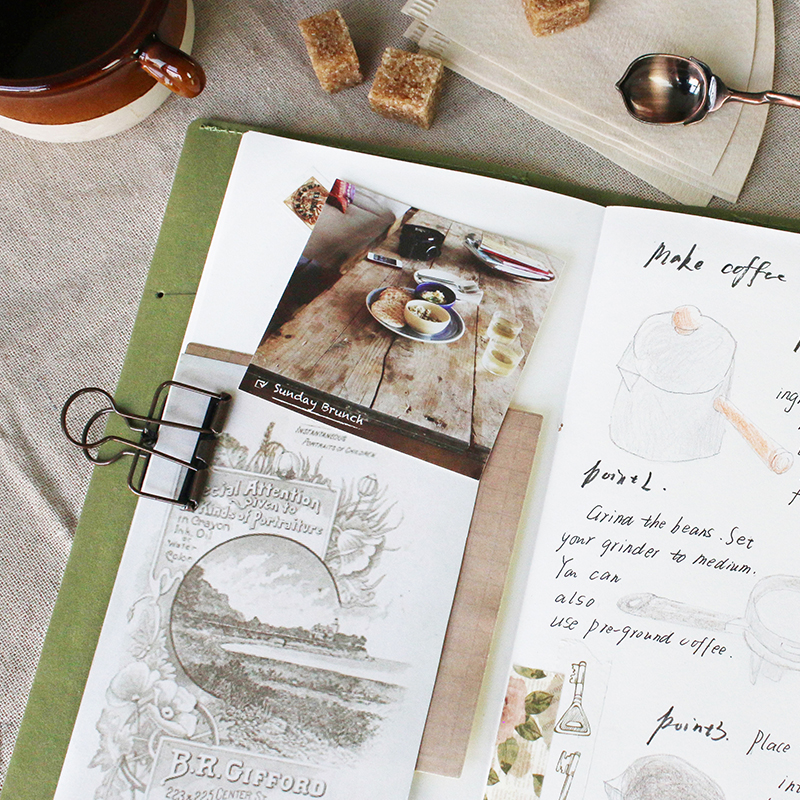 Sunday Brunch
INSTANTANEOUS
PORTRAITS OF CHILDREN
Special Attention
Given to
Kinds of Portraiture
in Crayon
Ink, Oil
Water
Color
B.R. GIFFORD
223 & 225 CENTER ST.
Make coffee
point2.
Grind the beans. Set
your grinder to medium.
You can
also
use pre-ground coffee.
point3. Place